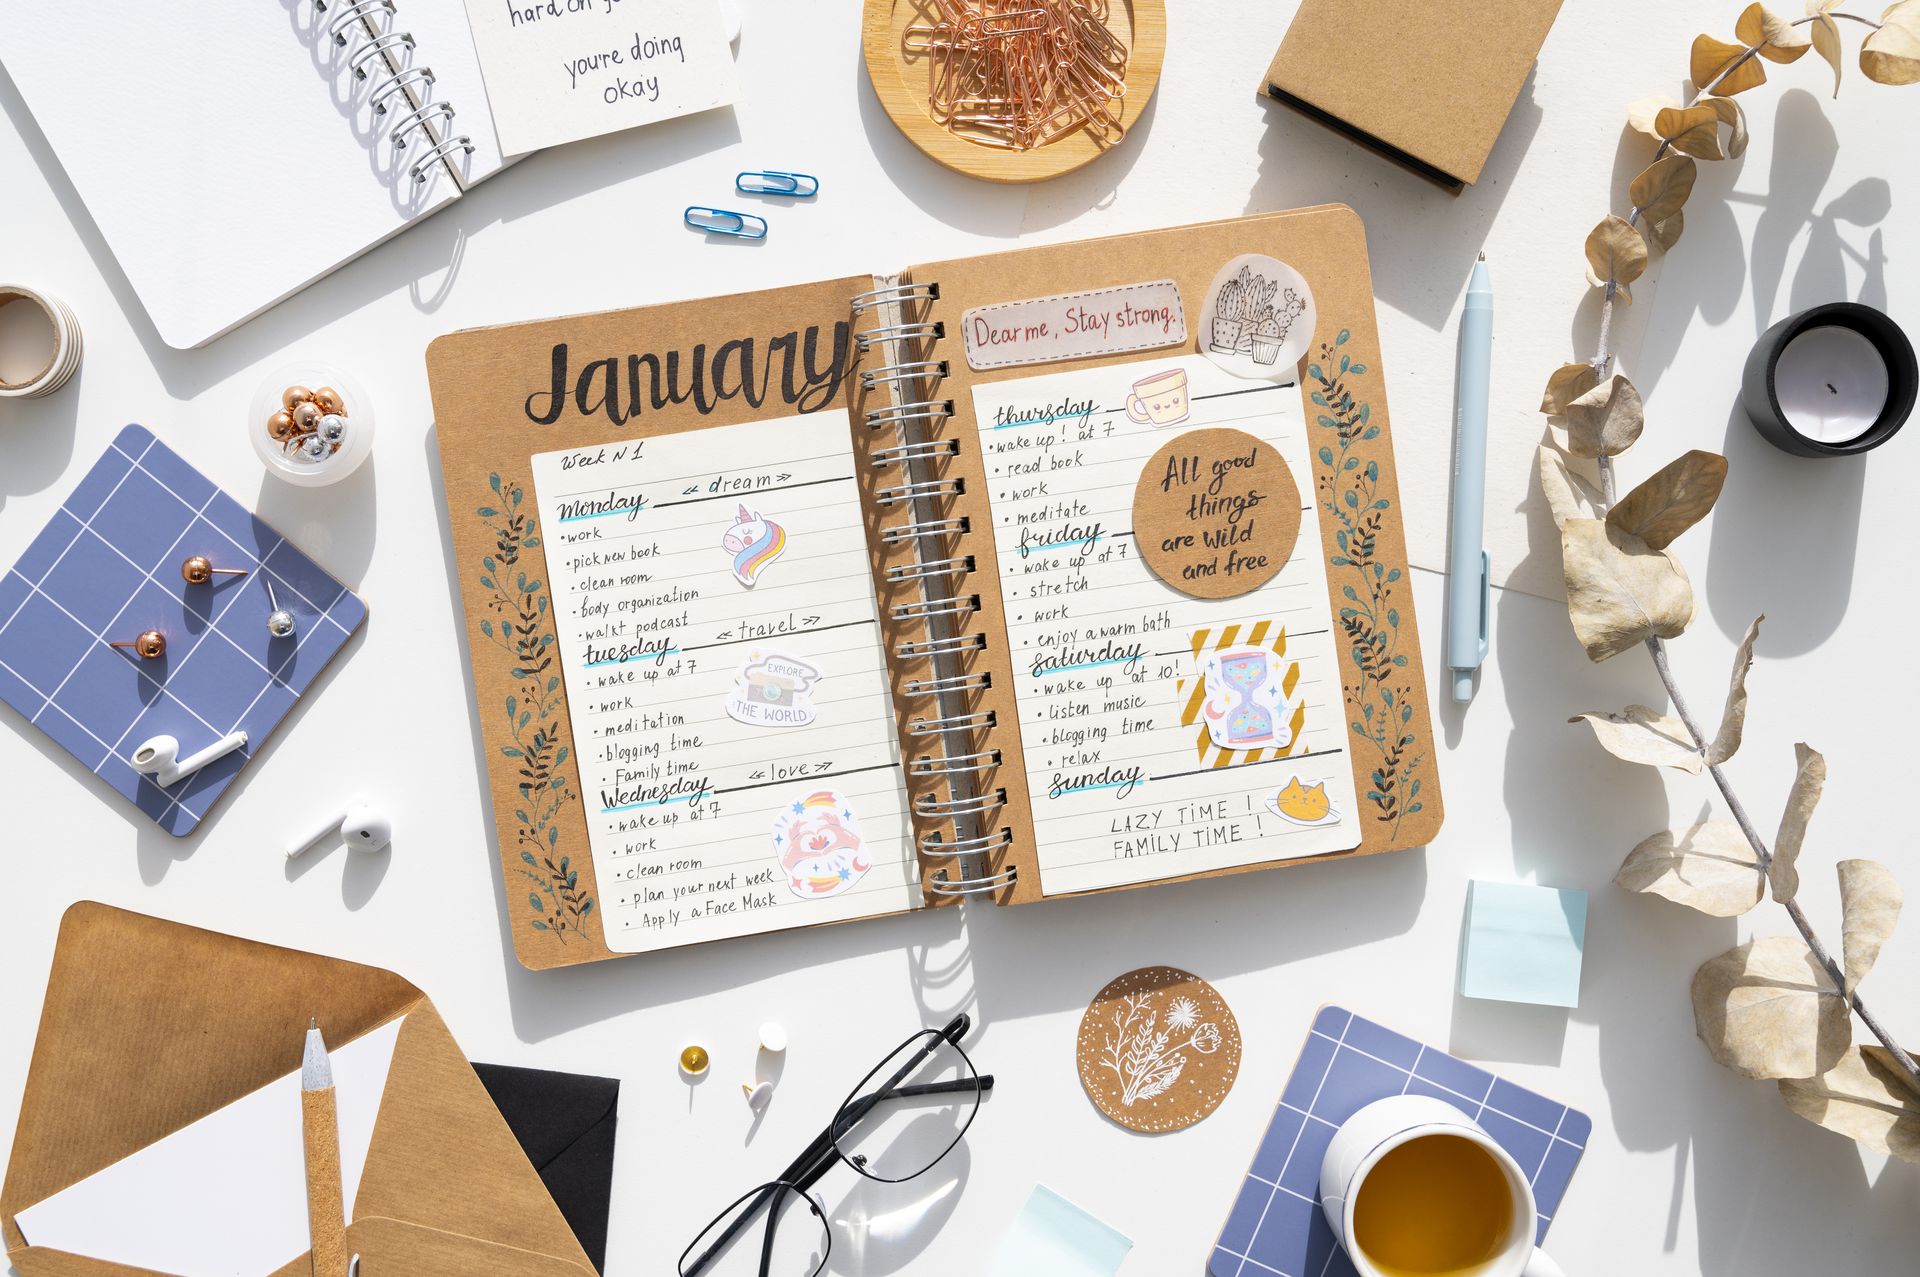 hard on
you're doing
okay
January
Week N 1
monday
« dream »
• work
• pick new book
• clean room
• body organization
• walkt podcast
tuesday
« travel »
• wake up at 7
• work
• meditation
• blogging time
• Family time
EXPLORE
THE WORLD
Wednesday
« love »
• wake up at 7
• work
• clean room
• plan your next week
• Apply a Face Mask
Dear me, Stay strong.
thursday
• wake up! at 7
• read book
• work
• meditate
All good
things
are wild
and free
friday
• wake up at 7
• stretch
• work
• enjoy a warm bath
saturday
• wake up at 10!
• listen music
• blogging time
• relax
sunday
LAZY TIME !
FAMILY TIME !